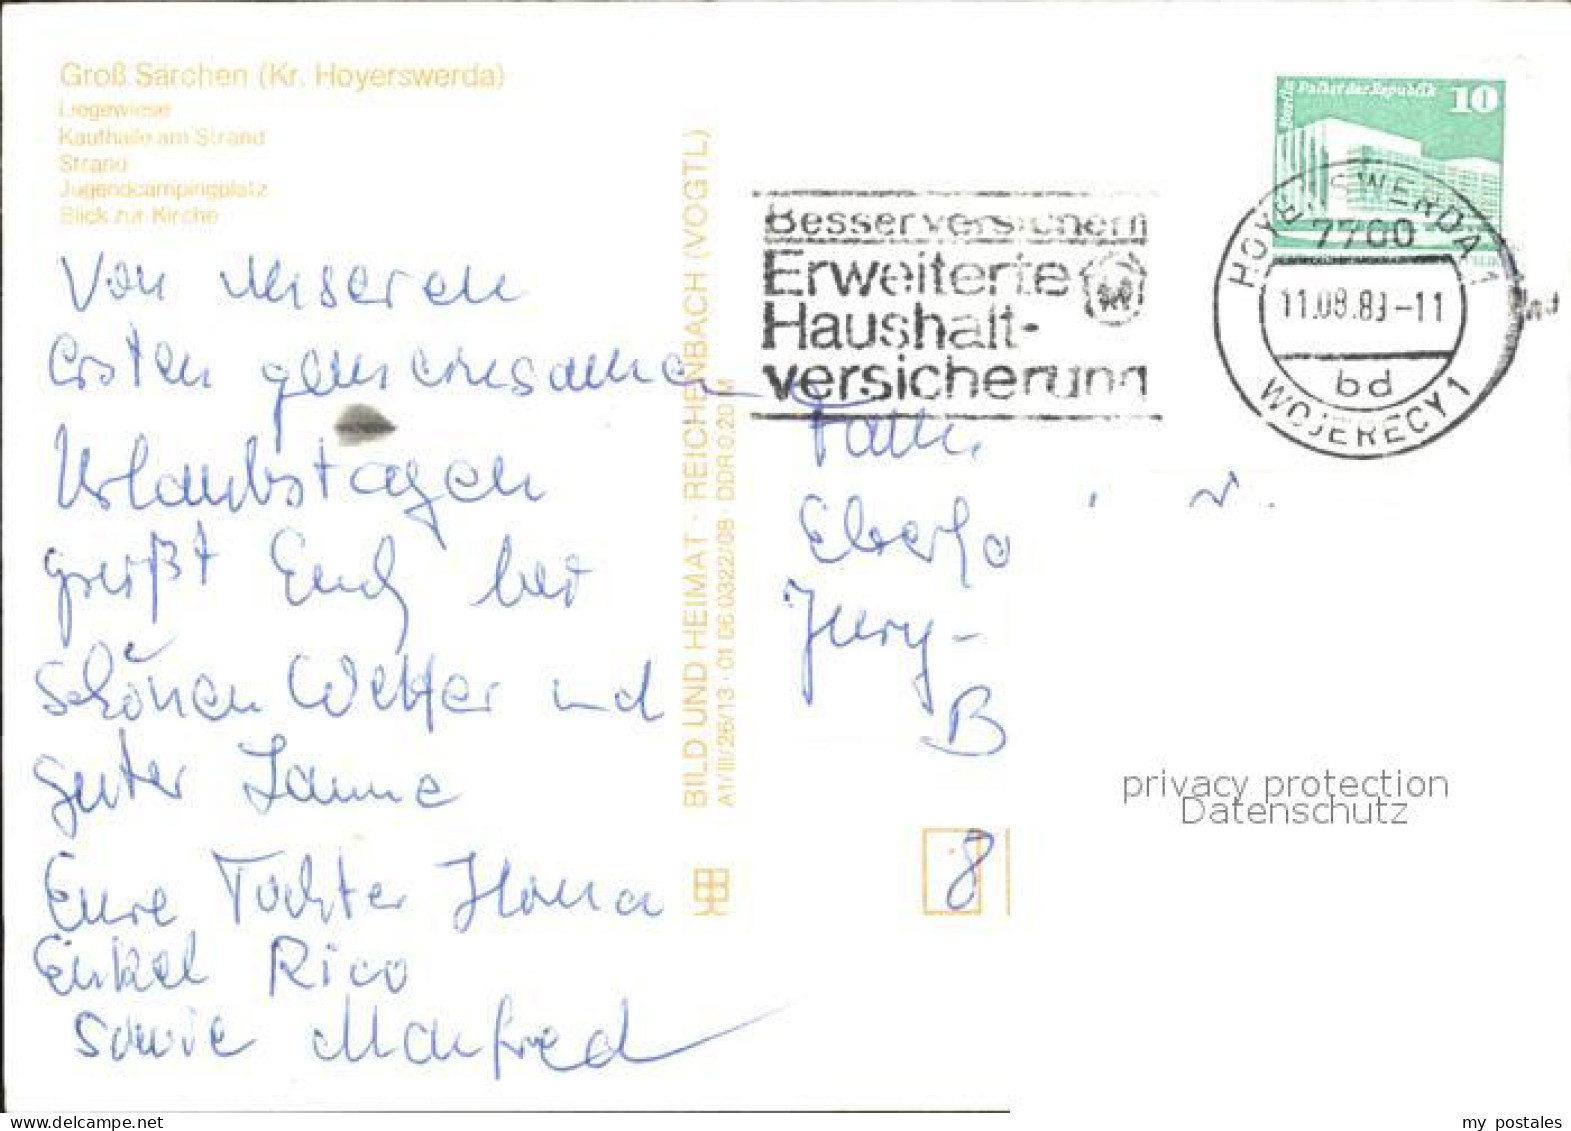 Groß Särchen (Kr. Hoyerswerda)
Liegewiese
Kaufhalle am Strand
Strand
Jugendcampingplatz
Blick zur Kirche
Von unseren
ersten gemeinsamen
Urlaubstagen
grüßt Euch bei
schönen Wetter und
guter Laune
Eure Tochter Ilona
Enkel Rico
sowie Manfred
BILD UND HEIMAT · REICHENBACH (VOGTL)
A1/III/26/13 · 01 06 0322/08 · DDR 0,20 M
Berlin Palast der Republik 10
Besser versichern
Erweiterte
Haushalt-
versicherung
HOYERSWERDA 1
7700
11.08.83-11
bd
WOJERECY 1
Fam.
8
privacy protection
Datenschutz
my postales